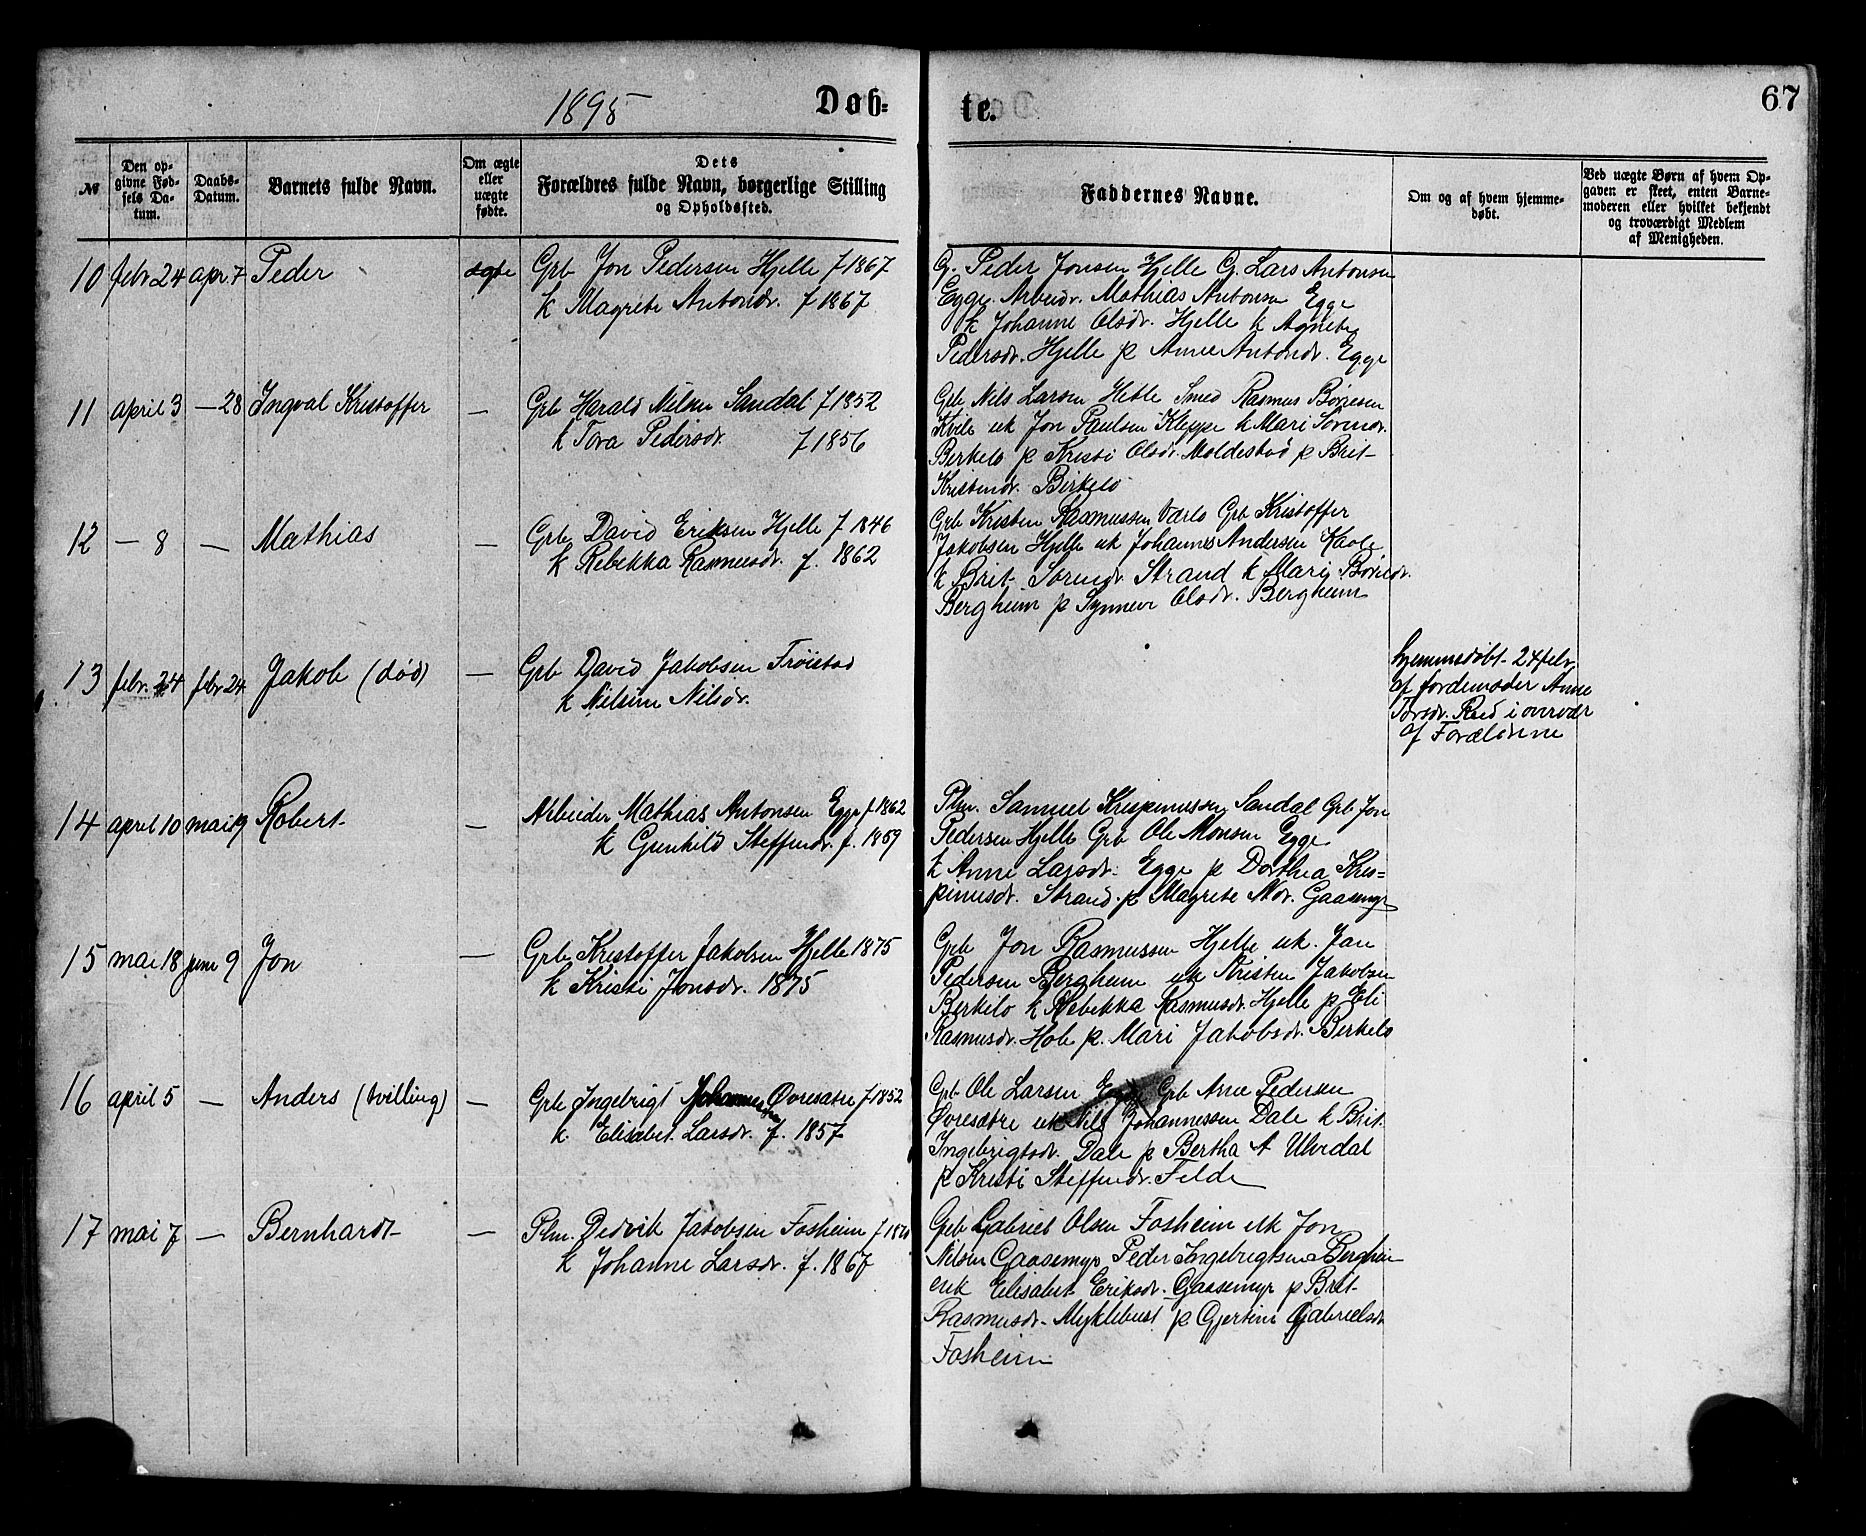 1895
Døb-
te.
67
№
Den op-
givne Fød-
sels Da-
tum.
Daabs-
Datum.
Barnets fulde Navn.
Om ægte
eller
uægte
fødte.
Dets
Forældres fulde Navn, borgerlige Stilling
og Opholdssted.
Faddernes Navne.
Om og af hvem hjemme-
døbt.
Ved uægte Børn af hvem Op-
gaven er skeet, enten Barne-
moderen eller hvilket bekjendt
og troværdigt Medlem
af Menigheden.
10 febr 24 apr. 7 Peder ægte Grb Jon Pedersen Hjelle f 1867
k Magrete Antondr. f 1867
G. Peder Jonsen Hjelle G. Lars Antonsen
Egge. Arbeidr. Mathias Antonsen Egge
k Johanne Olsdr. Hjelle k Agnete
Pedersdr. Hjelle p Anne Antondr. Egge
11 april 3 — 28 Ingval Kristoffer — Grb Harald Nilsen Sandal f 1852
k Tora Pedersdr. f 1856
Grb Nils Larsen Hetle Smed Rasmus Børresen
Kvile uk Jon Paulsen Kleppe k Mari Sørensdr.
Berkelo p Kristi Olsdr. Moldestad p Brit
Kristendr. Birkelo
12 — 8 — Mathias — Grb David Eriksen Hjelle f 1846
k Rebekka Rasmusdr. f. 1862
Grb Kristen Rasmussen Værlo Grb Kristoffer
Jakobsen Hjelle uk Johannes Andersen
k Brit Sørendr Strand k Mari
Bergheim p Synneve Olsdr. Bergheim
13 febr. 24 febr 24 Jakob (død) — Grb David Jakobsen Trøistad
k Nilsine Nilsdr.
hjemmedøbt 24 febr
af Jordemoder Anne
Torsdr. Red i overvær
af Forældrene
14 april 10 mai 19 Robert — Arbeider Mathias Antonsen Egge f 1862
k Gunhild Steffendr. f. 1859
Plm. Samuel Krispinussen Sandal Grb Jon
Pedersen Hjelle Grb Ole Monsen Egge
k Anne Larsdr. Egge p Dorthea Kris=
pinusdr. Strand p Magrete Gaasemyr
15 mai 18 juni 9 Jon — Grb Kristoffer Jakobsen Hjelle 1875
k Kristi Jonsdr. 1875
Grb Jon Rasmussen Hjelle uk. Jan
Pedersen Bergheim uk Kristen Jakobsen
Berkelo k Rebekka Rasmusdr. Hjelle p Eli
Rasmusdr. Hole p. Mari Jakobsdr. Birkelo
16 april 5 — Anders (tvilling) — Grb Ingebrigt Johannessen Øvresætre f 1852
k. Elisabet Larsdr. f. 1857
Grb Ole Larsen Grb Arne Pedersen
Øvresætre uk Nils Johannessen Dale k Brit
Ingebrigtsdr. Dale p Bertha A Ulvedal
p Kristi Steffendr. Felde
17 mai 7 — Bernhardt — Plm. Dedvik Jakobsen Fosheim
k Johanne Larsdr. f. 1867
Grb Gabriel Olsen Fosheim uk Jon
Nilsen Gaasemyr Peder Ingebrigtsen Bergheim
uk Elisabet Eriksdr. Gaasemyr p Brit
Rasmusdr. Myklebust p Gjertine Gabrielsdr
Fosheim